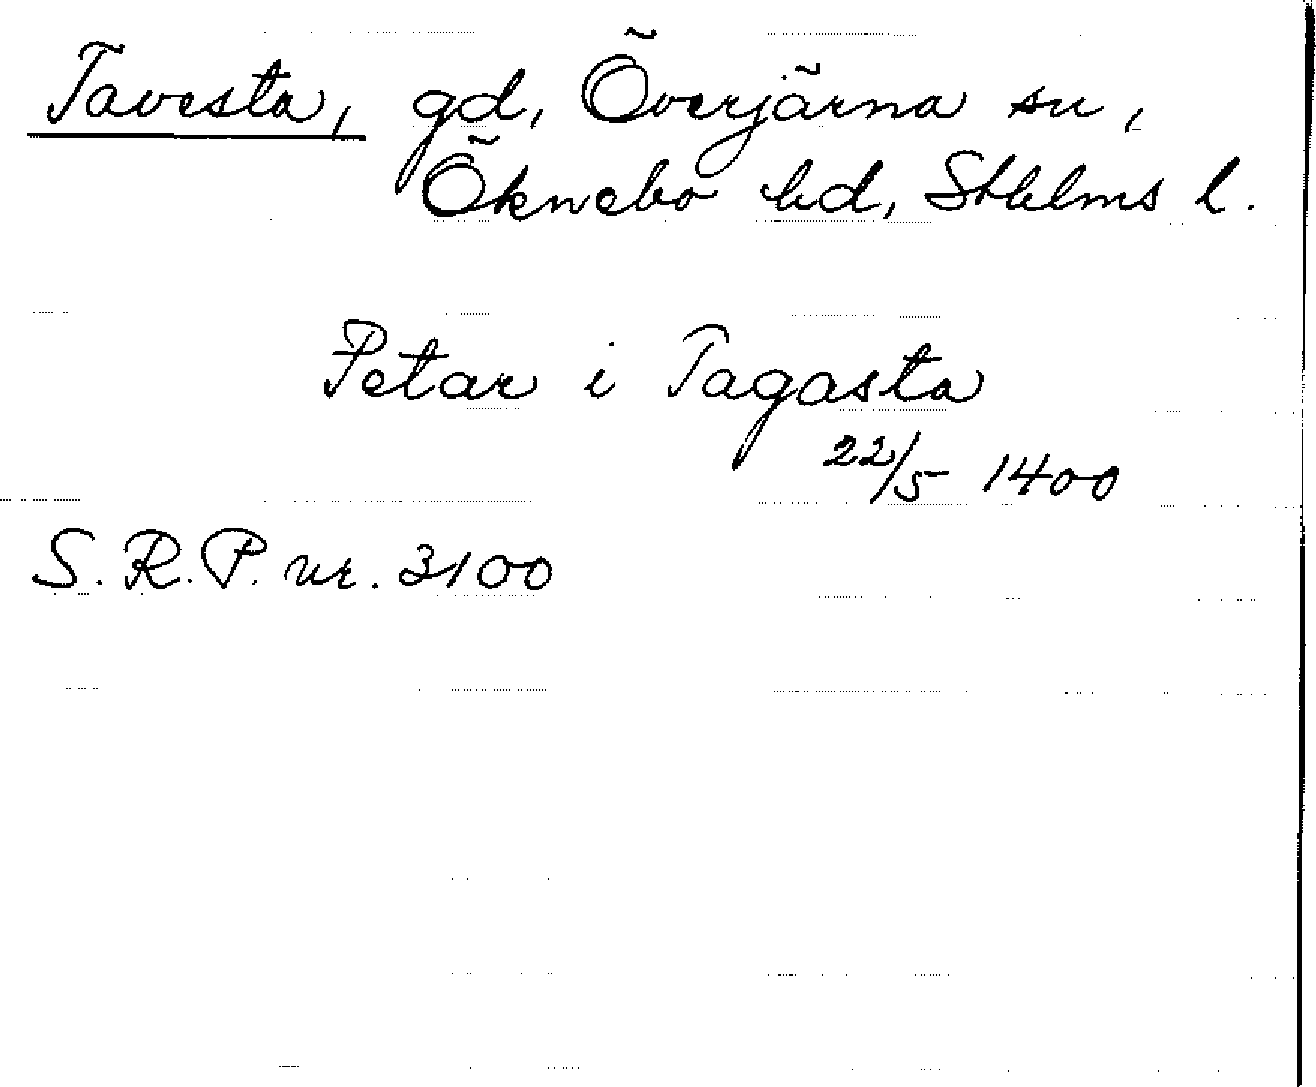 Tavesta, gd, Överjärna sn,
Öknebo hd, Sthlms l.
Petar i Tagasta
22/5 1400
S.R.P. nr. 3100